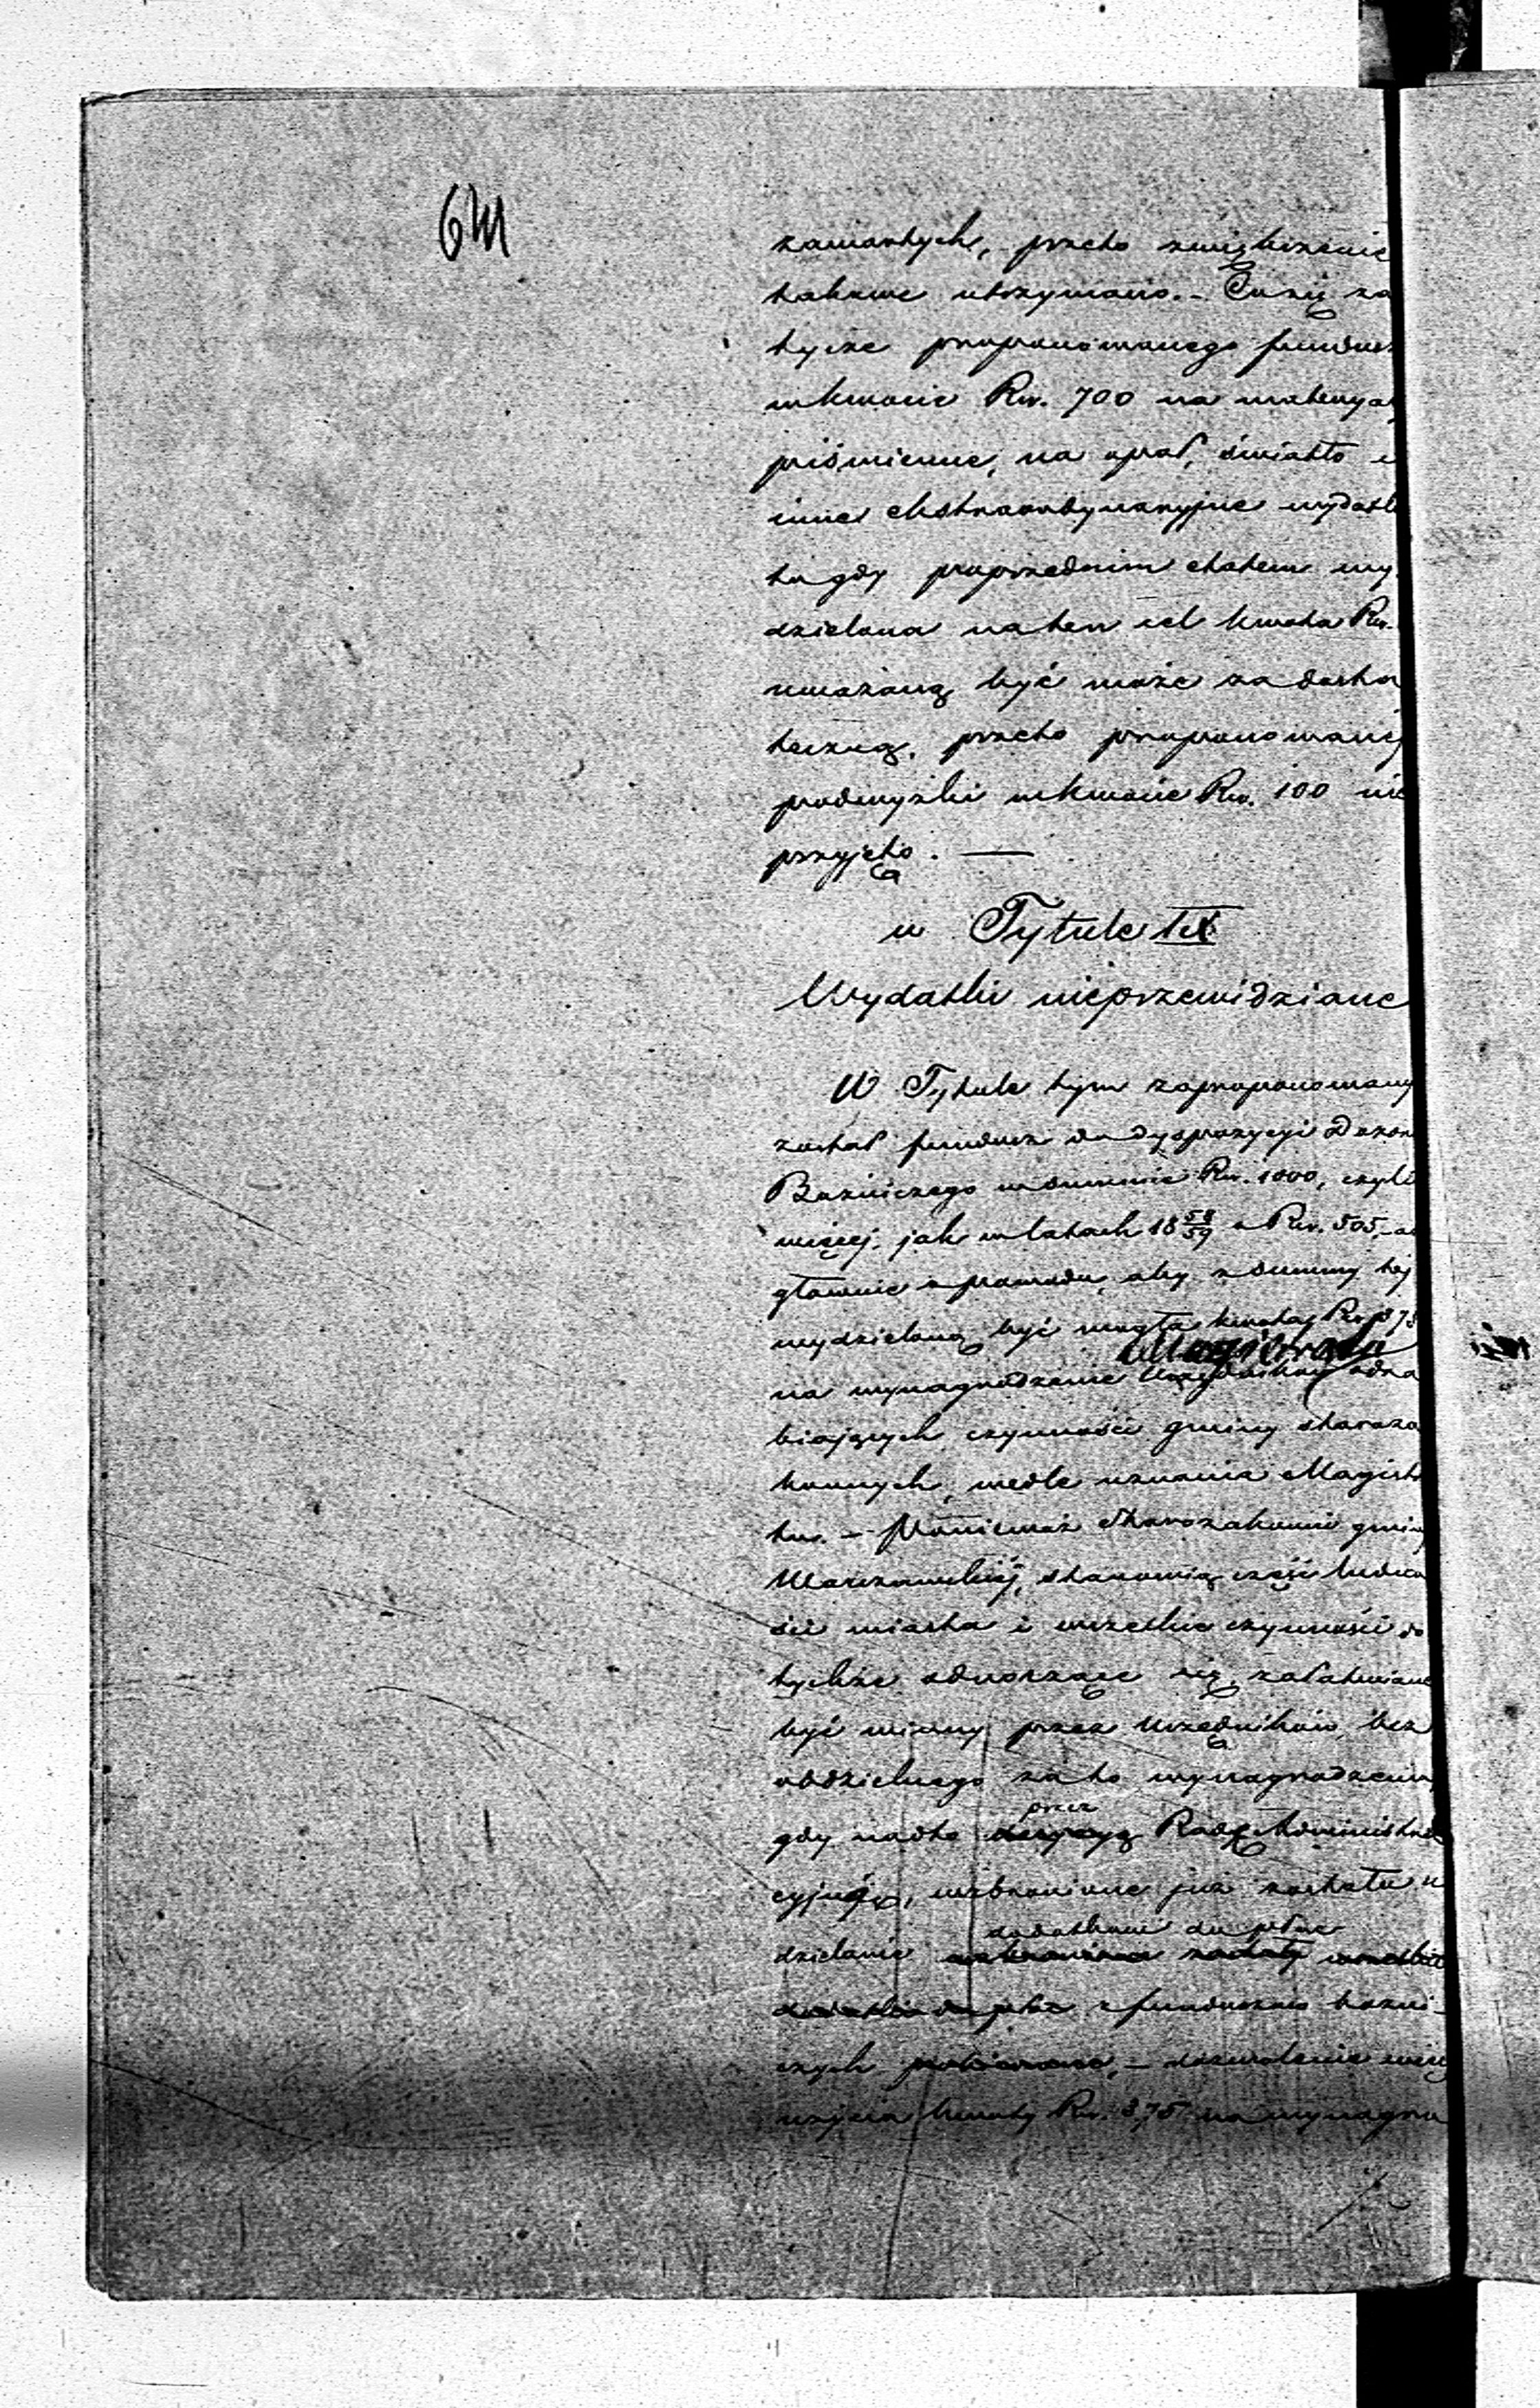 zawartych, przeto zwiększenie
takowe utrzymano. - Co się za
tycze proponowanego fundusz
w kwocie Rsr. 700 na materya
piśmienne, na opał, światło i
inne ekstraordynaryjne wydatk
tu gdy poprzednim etatem wy
dzielona na ten cel kwota Rsr.
uważaną być może za dosta
teczną, przeto proponowanéj
podwyżki w kwocie Rsr. 100 nie
przyjęto. —
w Tytule IX
Wydatki nieprzewidziane
W Tytule tym zaproponowany
został fundusz do dyspozycyi Dozor
Bóżniczego w summie Rsr. 1000, czyli
więcéj, jak w latach 18 58/59 o Rsr. 505, a
głównie z powodu, aby z summy téj
wydzieloną być mogła kwota Rsr. 375
Magistratu
na wynagrodzenie Urzędników odra
biających czynności gminy staroza
konnych, wedle uznania Magistra
tu. - Ponieważ Starozakonni gminy
Warszawskiéj, stanowią część ludno
ści miasta i wszelkie czynności do
tychże odnoszące się, załatwiane
być winny przez Urzędników, bez
oddzielnego za to wynagrodzenia,
przez
gdy nadto decyzyą Radę Administra
cyjną, wzbronione już zostało u
dodatków do płac
dzielanie
z funduszów bóżni-
czych - dozwolenie więc
użycia kwoty Rsr. 375 na wynagro